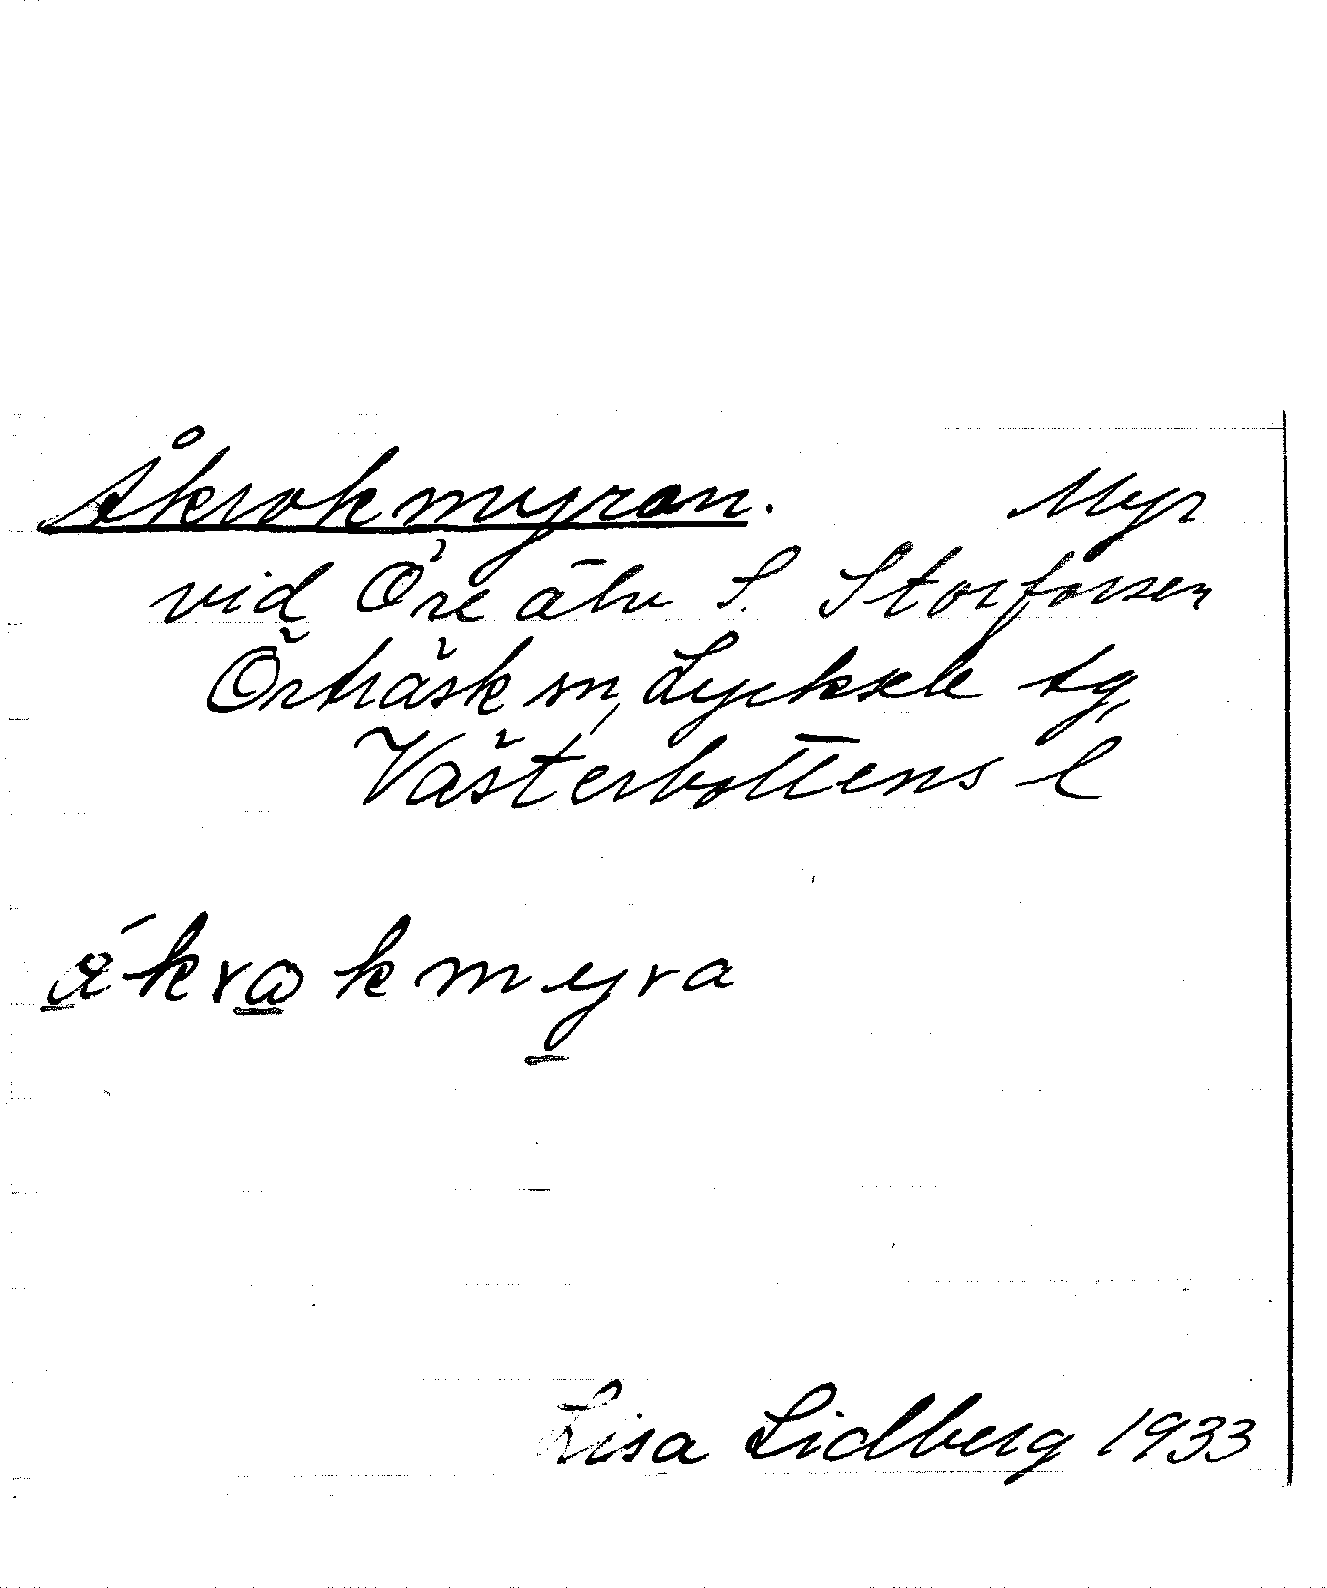 Åkrokmyran. Myr
vid Öre älv S. Storforsen
Örträsk sn, Lycksele tg,
Västerbottens l
åkrωkmyra
Lisa Lidberg 1933